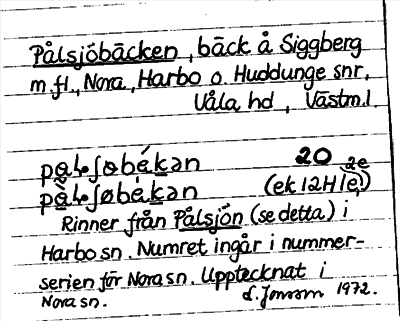 Pålsjöbäcken, bäck å Siggberg
m fl., Nora, Harbo o. Huddunge snr,
Våla hd, Västm.l.
pa̰ɬʃøbɛ́kən 20
pà̰ɬʃøbɛ̀kən (ek 12H 1e,) 2e
Rinner från Pålsjön (se detta) i
Harbo sn. Numret ingår i nummer-
serien för Nora sn. Upptecknat i
Nora sn. 1972.